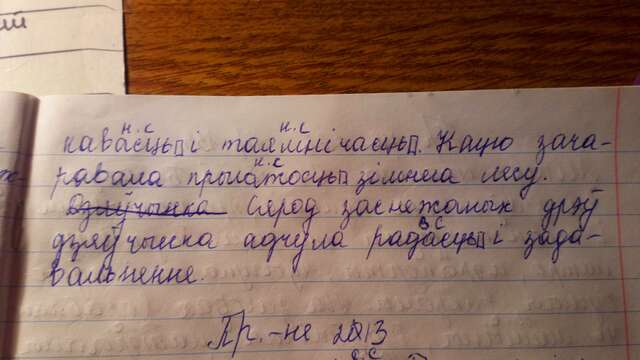 ий
н.с н.с
кавасць□ і таямнічасць□. Кацю зача-
н.с
равала прыгажосць□ зімняга лесу.
Дзяўчынка Серод заснежаных дрэў
в с
дзяўчынка адчула радасць□ і зада-
вальненне.
Пр.-не 213
с.с